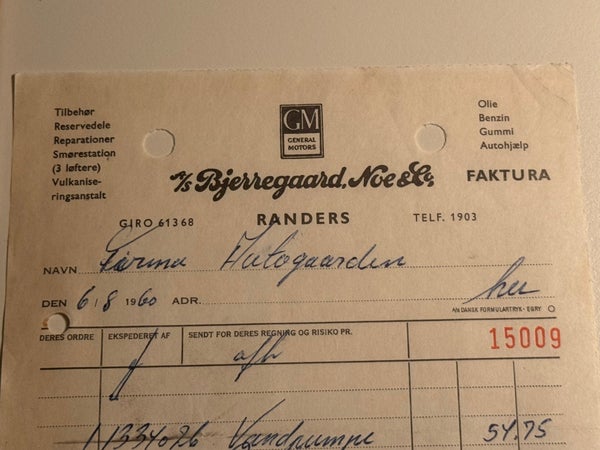 Tilbehør
Reservedele
Reparationer
Smørestation
(3 løftere)
Vulkanise-
ringsanstalt
GM
GENERAL
MOTORS
Olie
Benzin
Gummi
Autohjælp
A/S Bjerregaard, Noe & Co.
FAKTURA
GIRO 61368
RANDERS
TELF. 1903
NAVN Firma Autogaarden
DEN 6/8 1960 ADR. her
A/S DANSK FORMULARTRYK - EGRY
DERES ORDRE EKSPEDERET AF SENDT FOR DERES REGNING OG RISIKO PR. 15009
afh
1 1334026 Vandpumpe 54.75